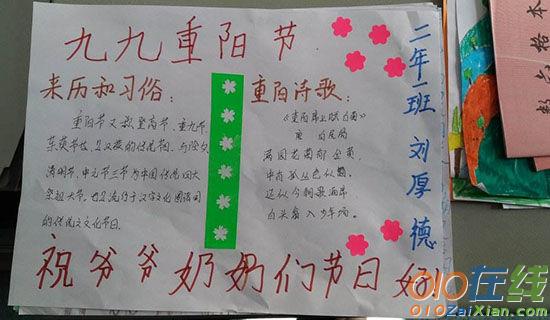 九九重阳节
来历和习俗：
重阳节又称登高节、重九节、
茱萸节也是汉族的传统节日，与除夕
清明节、中元节三节为中国传统四大
祭祖大节，也是流行于汉字文化圈诸国
的传统文化节日。
重阳诗歌：
满园花菊郁金黄，
中有孤丛色似霜。
还似今朝歌酒席
白头翁入少年场。
二年一班 刘厚德
祝爷爷奶奶们节日好
010在线
010ZaiXian.com